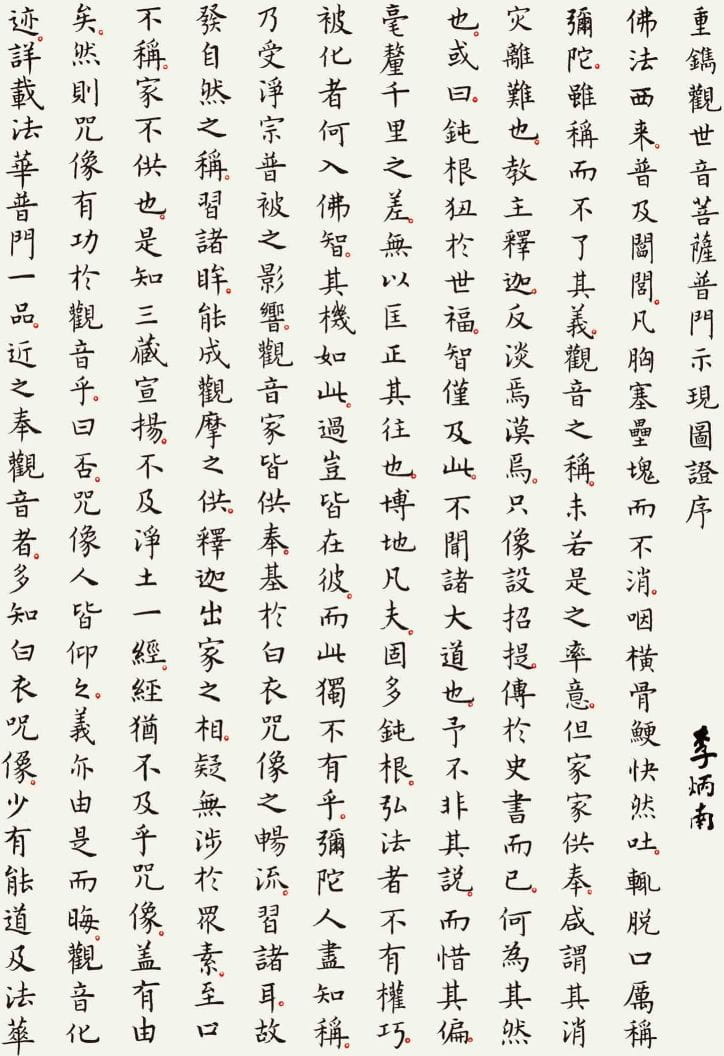 重鐫觀世音菩薩普門示現圖證序
李炳南
佛法西来。普及閭閻。凡胸塞壘塊而不消。咽橫骨鯁快然吐。輒脫口厲稱
彌陀。雖稱而不了其義。觀音之稱。未若是之率意。但家家供奉。咸謂其消
灾離難也。教主釋迦。反淡焉漠焉。只像設招提。傳於史書而已。何為其然
也。或曰。鈍根狃於世福。智僅及此。不聞諸大道也。予不非其說。而惜其偏。
毫釐千里之差。無以匡正其往也。博地凡夫。固多鈍根。弘法者不有權巧。
被化者何入佛智。其機如此。過豈皆在彼。而此獨不有乎。彌陀人盡知稱。
乃受淨宗普被之影響。觀音家皆供奉。基於白衣咒像之暢流。習諸耳。故
發自然之稱。習諸眸。能成觀摩之供。釋迦出家之相。疑無涉於眾素。至口
不稱。家不供也。是知三藏宣揚。不及淨土一經。經猶不及乎咒像。盖有由
矣。然則咒像有功於觀音乎。曰否。咒像人皆仰之。義亦由是而晦。觀音化
迹。詳載法華普門一品。近之奉觀音者。多知白衣呪像。少有能道及法華